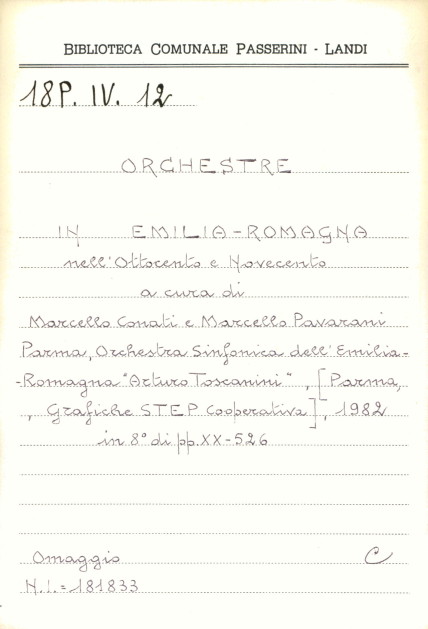 BIBLIOTECA COMUNALE PASSERINI - LANDI
18P. IV. 12
ORCHESTRE
IN EMILIA-ROMAGNA
nell'Ottocento e Novecento
a cura di
Marcello Conati e Marcello Pavarani
Parma, Orchestra Sinfonica dell'Emilia-
-Romagna "Arturo Toscanini", [Parma,
, Grafiche STEP Cooperativa], 1982
in 8° di pp. XX-526
Omaggio C
N.I.=181833